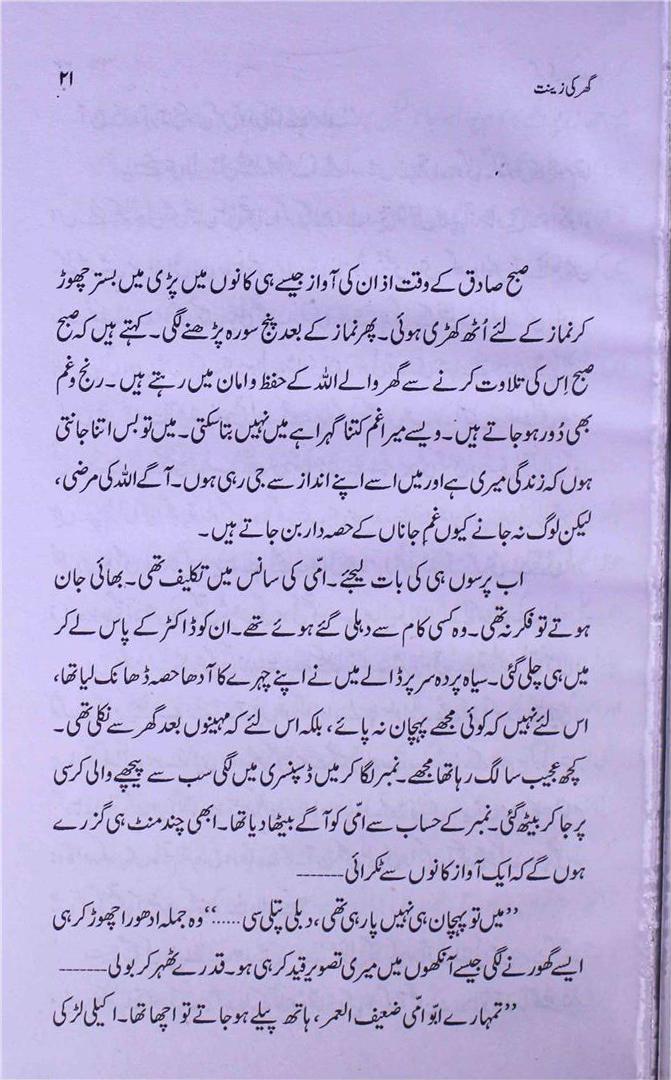 گھر کی زینت ۲۱
صبح صادق کے وقت اذان کی آواز جیسے ہی کانوں میں پڑی میں بستر چھوڑ
کر نماز کے لئے اُٹھ کھڑی ہوئی۔ پھر نماز کے بعد پنج سورہ پڑھنے لگی۔ کہتے ہیں کہ صبح
صبح اِس کی تلاوت کرنے سے گھر والے اللہ کے حفظ و امان میں رہتے ہیں۔ رنج و غم
بھی دُور ہو جاتے ہیں۔ ویسے میرا غم کتنا گہرا ہے میں نہیں بتا سکتی۔ میں تو بس اتنا جانتی
ہوں کہ زندگی میری ہے اور میں اسے اپنے انداز سے جی رہی ہوں۔ آگے اللہ کی مرضی،
لیکن لوگ نہ جانے کیوں غمِ جاناں کے حصہ دار بن جاتے ہیں۔
اب پرسوں ہی کی بات لیجئے۔ امّی کی سانس میں تکلیف تھی۔ بھائی جان
ہوتے تو فکر نہ تھی۔ وہ کسی کام سے دہلی گئے ہوئے تھے۔ ان کو ڈاکٹر کے پاس لے کر
میں ہی چلی گئی۔ سیاہ پردہ سر پر ڈالے میں نے اپنے چہرے کا آدھا حصہ ڈھانک لیا تھا،
اس لئے نہیں کہ کوئی مجھے پہچان نہ پائے، بلکہ اس لئے کہ مہینوں بعد گھر سے نکلی تھی۔
کچھ عجیب سا لگ رہا تھا مجھے۔ نمبر لگا کر میں ڈسپنسری میں لگی سب سے پیچھے والی کرسی
پر جا کر بیٹھ گئی۔ نمبر کے حساب سے امّی کو آگے بیٹھا دیا تھا۔ ابھی چند منٹ ہی گزرے
ہوں گے کہ ایک آواز کانوں سے ٹکرائی-------
”میں تو پہچان ہی نہیں پا رہی تھی، دبلی پتلی سی.....“ وہ جملہ ادھورا چھوڑ کر ہی
ایسے گھورنے لگی جیسے آنکھوں میں میری تصویر قید کر رہی ہو۔ قدرے ٹھہر کر بولی-------
”تمہارے ابّو امّی ضعیف العمر، ہاتھ پیلے ہو جاتے تو اچھا تھا۔ اکیلی لڑکی